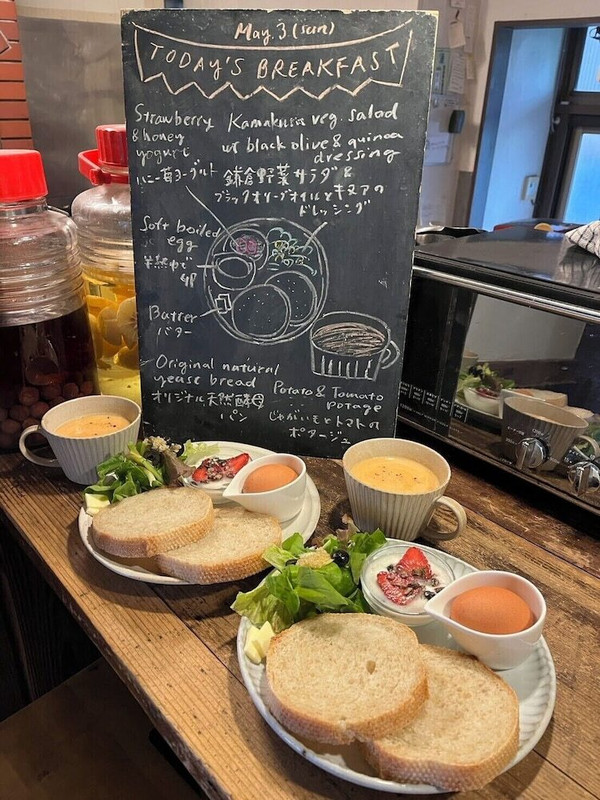 May. 3 (sun)
TODAY'S BREAKFAST
Strawberry
& honey
yogurt
ハニー苺ヨーグルト
Kamakura veg. salad
w/ black olive & quinoa
dressing
鎌倉野菜サラダ&
ブラックオリーブオイルとキヌアの
ドレッシング
Soft boiled
egg
半熟ゆで
卵
Batter
バター
Original natural
yease bread
オリジナル天然酵母
パン
Potato & Tomato
potage
じゃがいもとトマトの
ポタージュ